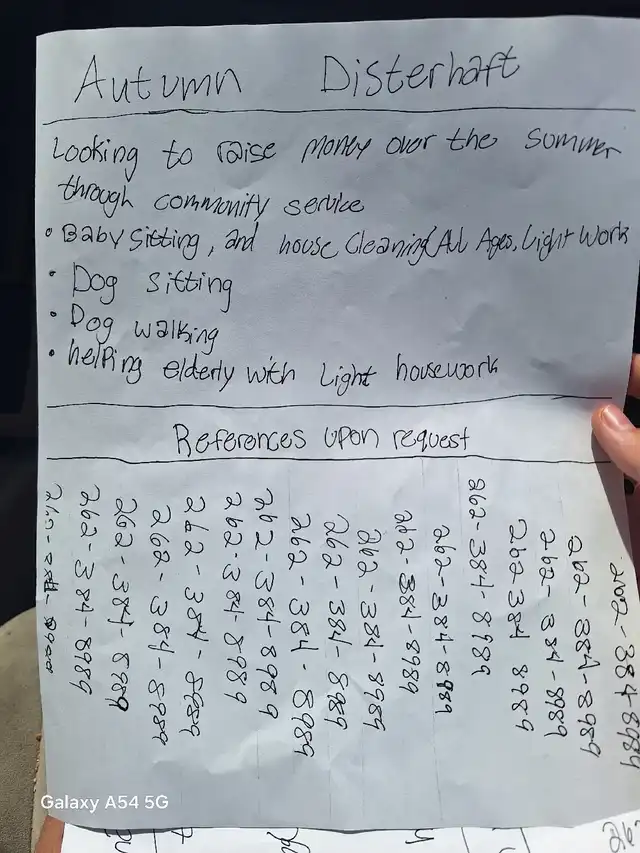 Autumn Disterhaft
Looking to raise money over the summer
through community service
• Baby sitting, and house cleaning(All Ages, Light work
• Dog sitting
• Dog walking
• helping elderly with Light housework
References upon request
262-384-8989
262-384-8989
262-384-8989
262-384-8989
262-384-8989
262-384-8989
262-384-8989
262-384-8989
262-384-8989
262-384-8989
262-384-8989
262-384-8989
262-384-8989
262-384 8989
262-384-8989
262-384-8989
262-384-8989
Galaxy A54 5G